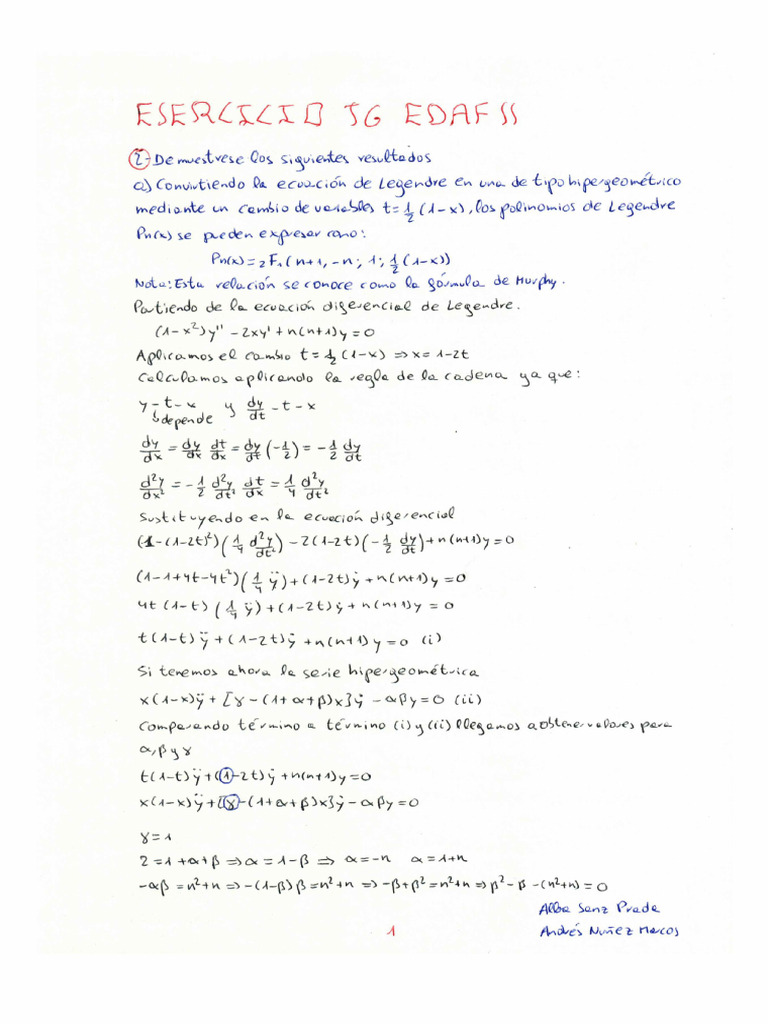 ESERCICIO JG EDAFSS
2- Demuestrese los siguientes resultados
a) Convirtiendo la ecuación de Legendre en una de tipo hipergeométrico
mediante un cambio de variables t=1/2(1-x), los polinomios de Legendre
Pn(x) se pueden expresar como:
Pn(x)=₂F₁(n+1,-n;1;1/2(1-x))
Nota: Esta relación se conoce como la fórmula de Murphy.
Partiendo de la ecuación diferencial de Legendre.
(1-x²)y''-2xy'+n(n+1)y=0
Aplicamos el cambio t=1/2(1-x)⇒x=1-2t
Calculamos aplicando la regla de la cadena ya que:
y-t-x y dy/dt-t-x
↳depende
dy/dx=dy/dx dt/dx=dy/dt(-1/2)=-1/2 dy/dt
d²y/dx²=-1/2 d²y/dt² dt/dx=1/4 d²y/dt²
Sustituyendo en la ecuación diferencial
(1-(1-2t)²)(1/4 d²y/dt²)-2(1-2t)(-1/2 dy/dt)+n(n+1)y=0
(1-1+4t-4t²)(1/4 ÿ)+(1-2t)ẏ+n(n+1)y=0
4t(1-t)(1/4 ÿ)+(1-2t)ẏ+n(n+1)y=0
t(1-t)ÿ+(1-2t)ẏ+n(n+1)y=0 (i)
Si tenemos ahora la serie hipergeométrica
x(1-x)ÿ+[γ-(1+α+β)x}ẏ-αβy=0 (ii)
Comparando término a término (i) y (ii) llegamos a obtener valores para
α,β y γ
t(1-t)ÿ+(1-2t)ẏ+n(n+1)y=0
x(1-x)ÿ+[γ-(1+α+β)x}ẏ-αβy=0
γ=1
2=1+α+β⇒α=1-β⇒ α=-n α=1+n
-αβ=n²+n⇒-(1-β)β=n²+n⇒-β+β²=n²+n⇒β²-β-(n²+n)=0
Alba Sanz Prada
1
Andrés Nuñez Marcos